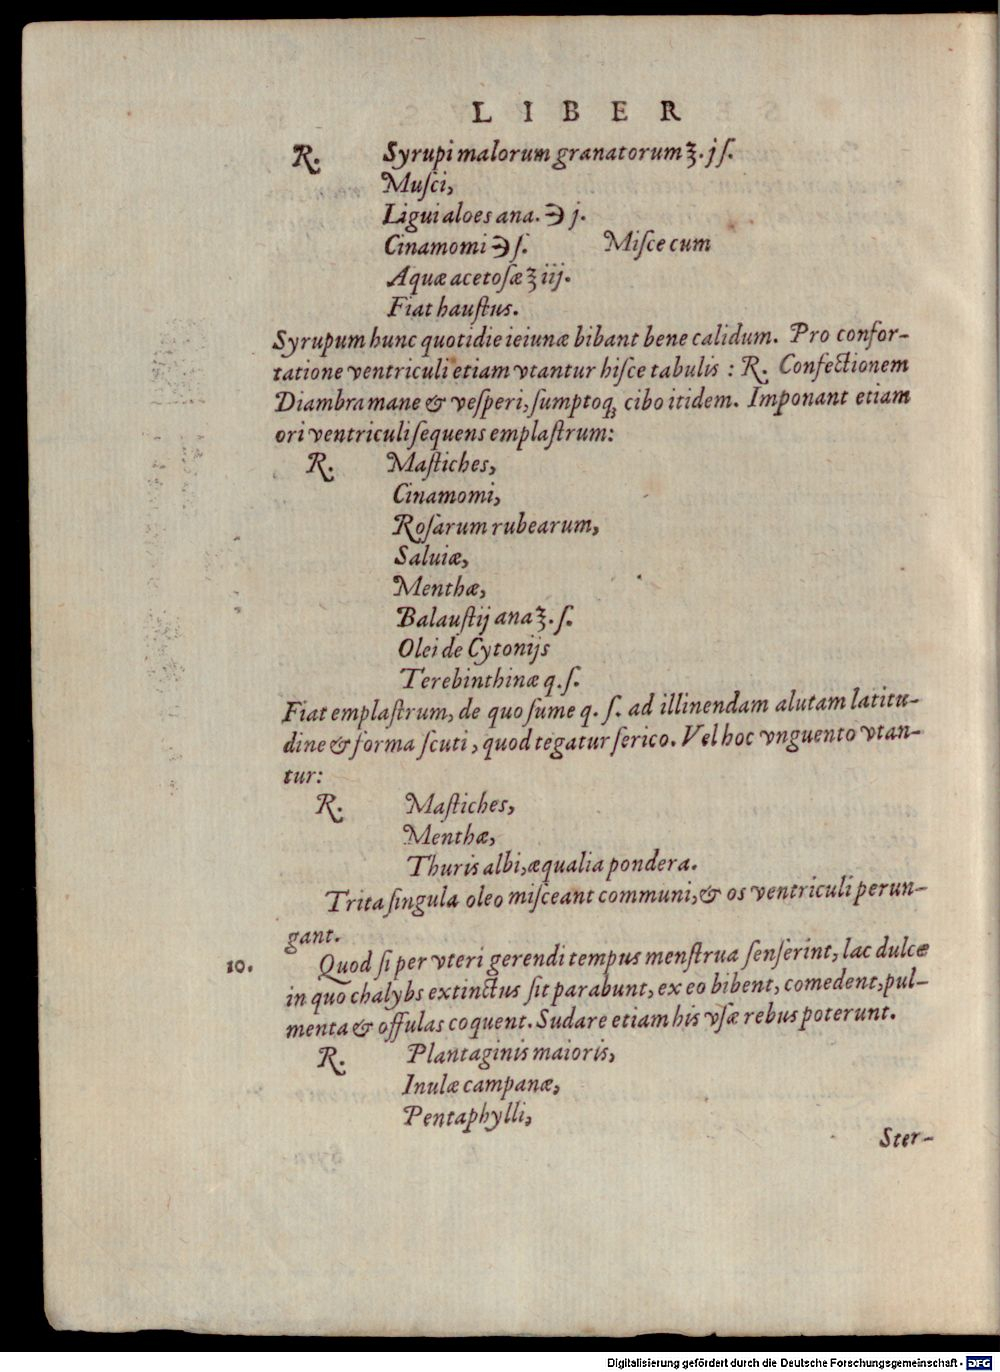 LIBER
℞. Syrupi malorum granatorum ʒ. j ſ.
Muſci,
Ligui aloes ana. ℈ j.
Cinamomi ℈ ſ. Miſce cum
Aquæ acetoſæ ʒ iij.
Fiat hauſtus.
Syrupum hunc quotidie ieiunæ bibant bene calidum. Pro confor-
tatione ventriculi etiam vtantur hiſce tabulis : ℞. Confectionem
Diambra mane & veſperi, ſumptoq; cibo itidem. Imponant etiam
ori ventriculi ſequens emplaſtrum:
℞. Maſtiches,
Cinamomi,
Roſarum rubearum,
Saluiæ,
Menthæ,
Balauſtij ana ʒ. ſ.
Olei de Cytonijs
Terebinthinæ q. ſ.
Fiat emplaſtrum, de quo ſume q. ſ. ad illinendam alutam latitu-
dine & forma ſcuti, quod tegatur ſerico. Vel hoc vnguento vtan-
tur:
℞. Maſtiches,
Menthæ,
Thuris albi, æqualia pondera.
Trita ſingula oleo miſceant communi, & os ventriculi perun-
gant.
10. Quod ſi per vteri gerendi tempus menſtrua ſenſerint, lac dulce
in quo chalybs extinctus ſit parabunt, ex eo bibent, comedent, pul-
menta & offulas coquent. Sudare etiam his vſæ rebus poterunt.
℞. Plantaginis maioris,
Inulæ campanæ,
Pentaphylli,
Ster-
Digitalisierung gefördert durch die Deutsche Forschungsgemeinschaft - DFG